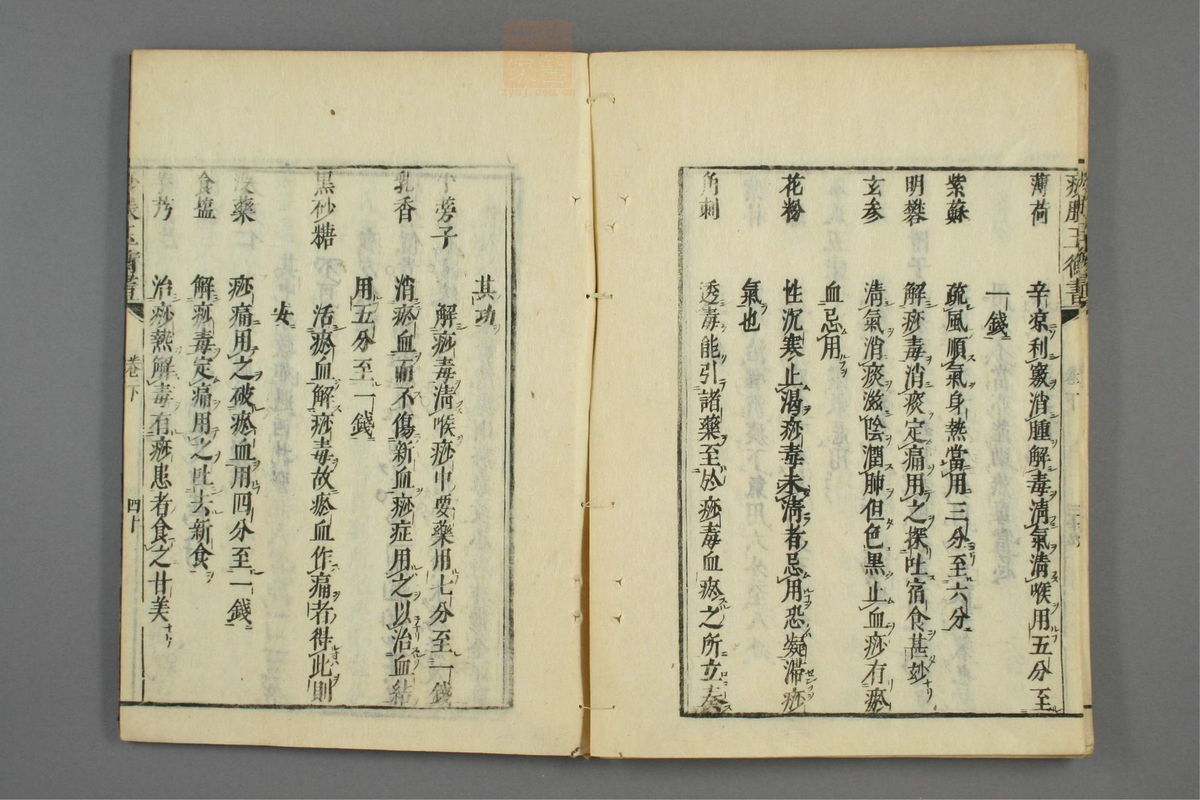 痧脹玉衡書
薄荷　辛涼利竅消腫解毒清氣清喉用五分至
一錢
紫蘇　疏風順氣身熱當用三分至六分
明礬　解痧毒消痰定痛用之探吐宿食甚妙
玄參　清氣消痰滋陰潤肺但色黑止血痧有瘀
血忌用
花粉　性沉寒止渴痧毒未清者忌用恐凝滯痧
氣也
角刺　透毒能引諸藥至於痧毒血瘀之所立奏
其功
牛蒡子　解痧毒清喉痧中要藥用七分至一錢
乳香　消瘀血而不傷新血痧症用之以治血結
用五分至一錢
黑砂糖　活瘀血解痧毒故瘀血作痛者得此則
安
沒藥　痧痛用之破瘀血用四分至一錢
食鹽　解痧毒定痛用之吐去新食
治痧熱解毒有痧患者食之甘美
痧脹玉衡書　卷下　四十